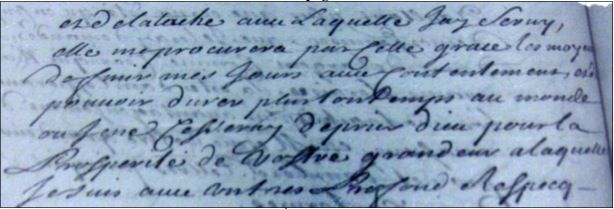 et de latache avec Laquelle Jay Servy,
elle me procurera par Cette grace les moyen
De finir mes Jours avec Contentement, et de
pouvoir durer plus lontemps au monde
ou Je ne Cesseray de prier dieu pour la
Prosperité de Vostre grandeur a laquelle
Je suis avec un tres Profond Respecq